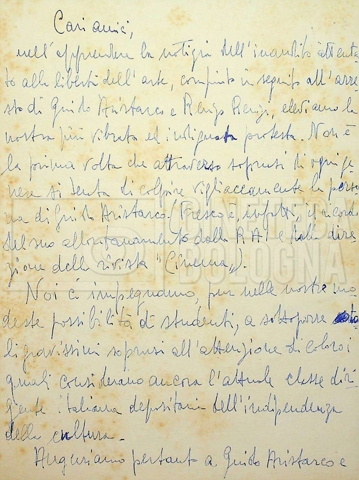 Cari amici,
nell'apprendere la notizia dell'inaudito attenta
to alla libertà dell'arte, compiuto in seguito all'arre
sto di Guido Aristarco e Renzo Renzi, eleviamo la
nostra più vibrata ed indignata protesta. Non è
la prima volta che attraverso soprusi di ogni ge
nere si tenta di colpire vigliaccamente la perso
na di Guido Aristarco
del suo allontanamento dalla RAI e dalla dire
zione della rivista "Cinema").
Noi ci impegnamo, pur nelle nostre mo
deste possibilità di studenti, a sottoporre
li gravissimi soprusi all'attenzione di coloro i
quali considerano ancora l'attuale classe diri
gente italiana depositaria dell'indipendenza
della cultura.
Auguriamo pertanto a Guido Aristarco e
BOLOGNA